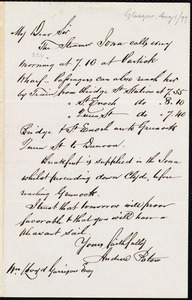 Glasgow, Aug 1/77
My Dear Sir
The Steamer Iona calls every
morning at 7.10 at Partick
Wharf. Passengers can also reach her
by Train from Bridge St Station at 7.55
" St Enoch do " 8.10
" Queen St do - 7.40
Bridge & St Enoch are to Greenock
Queen St to Dunoon.
Breakfast is supplied in the Iona
whilst proceeding down Clyde, before
reaching Greenock.
I trust that tomorrow will prove
favorable & that you will have a
pleasant sail.
Yours faithfully
Andrew Paton
Wm Lloyd Garrison Esq